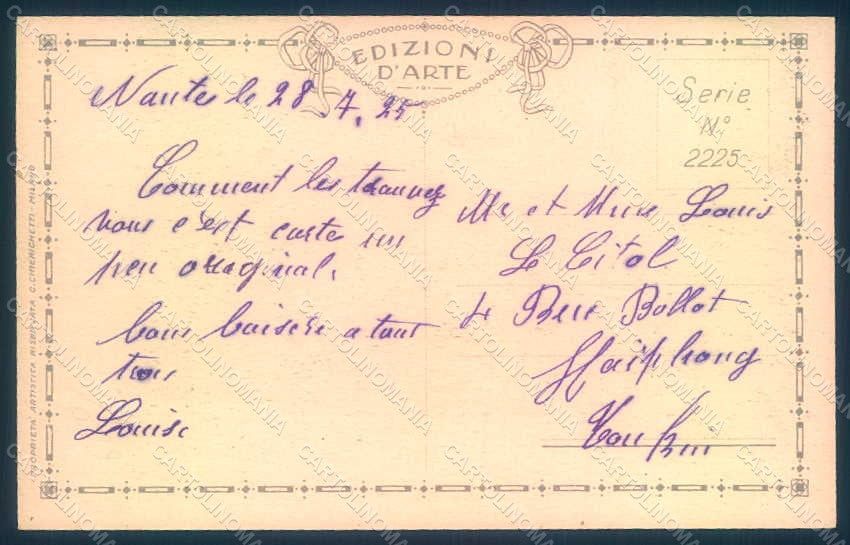 EDIZIONI
D'ARTE
Serie
Nº
2225
Nantes le 28 7. 25
Comment les trouvez
vous c'est carte un
peu original.
bons baisers a tout
trois
Louise
Mr et Mme Louis
Le Citol
4 Rue Bollot
Haiphong
Tonkin
PROPRIETA' ARTISTICA RISERVATA G. CHIERICHETTI - MILANO
CARTOLINOMANIA